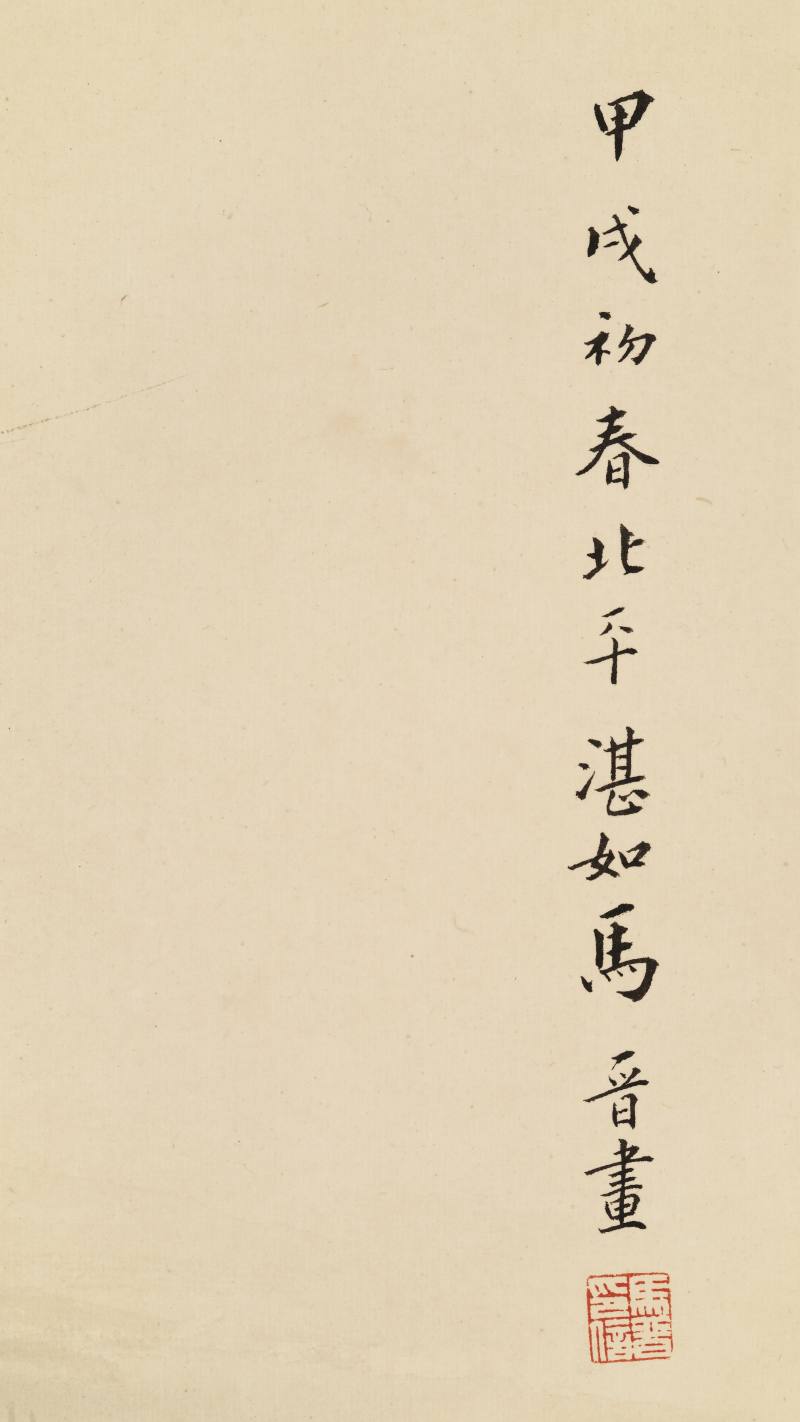 甲戌初春北平湛如馬晉畫
馬晉印信